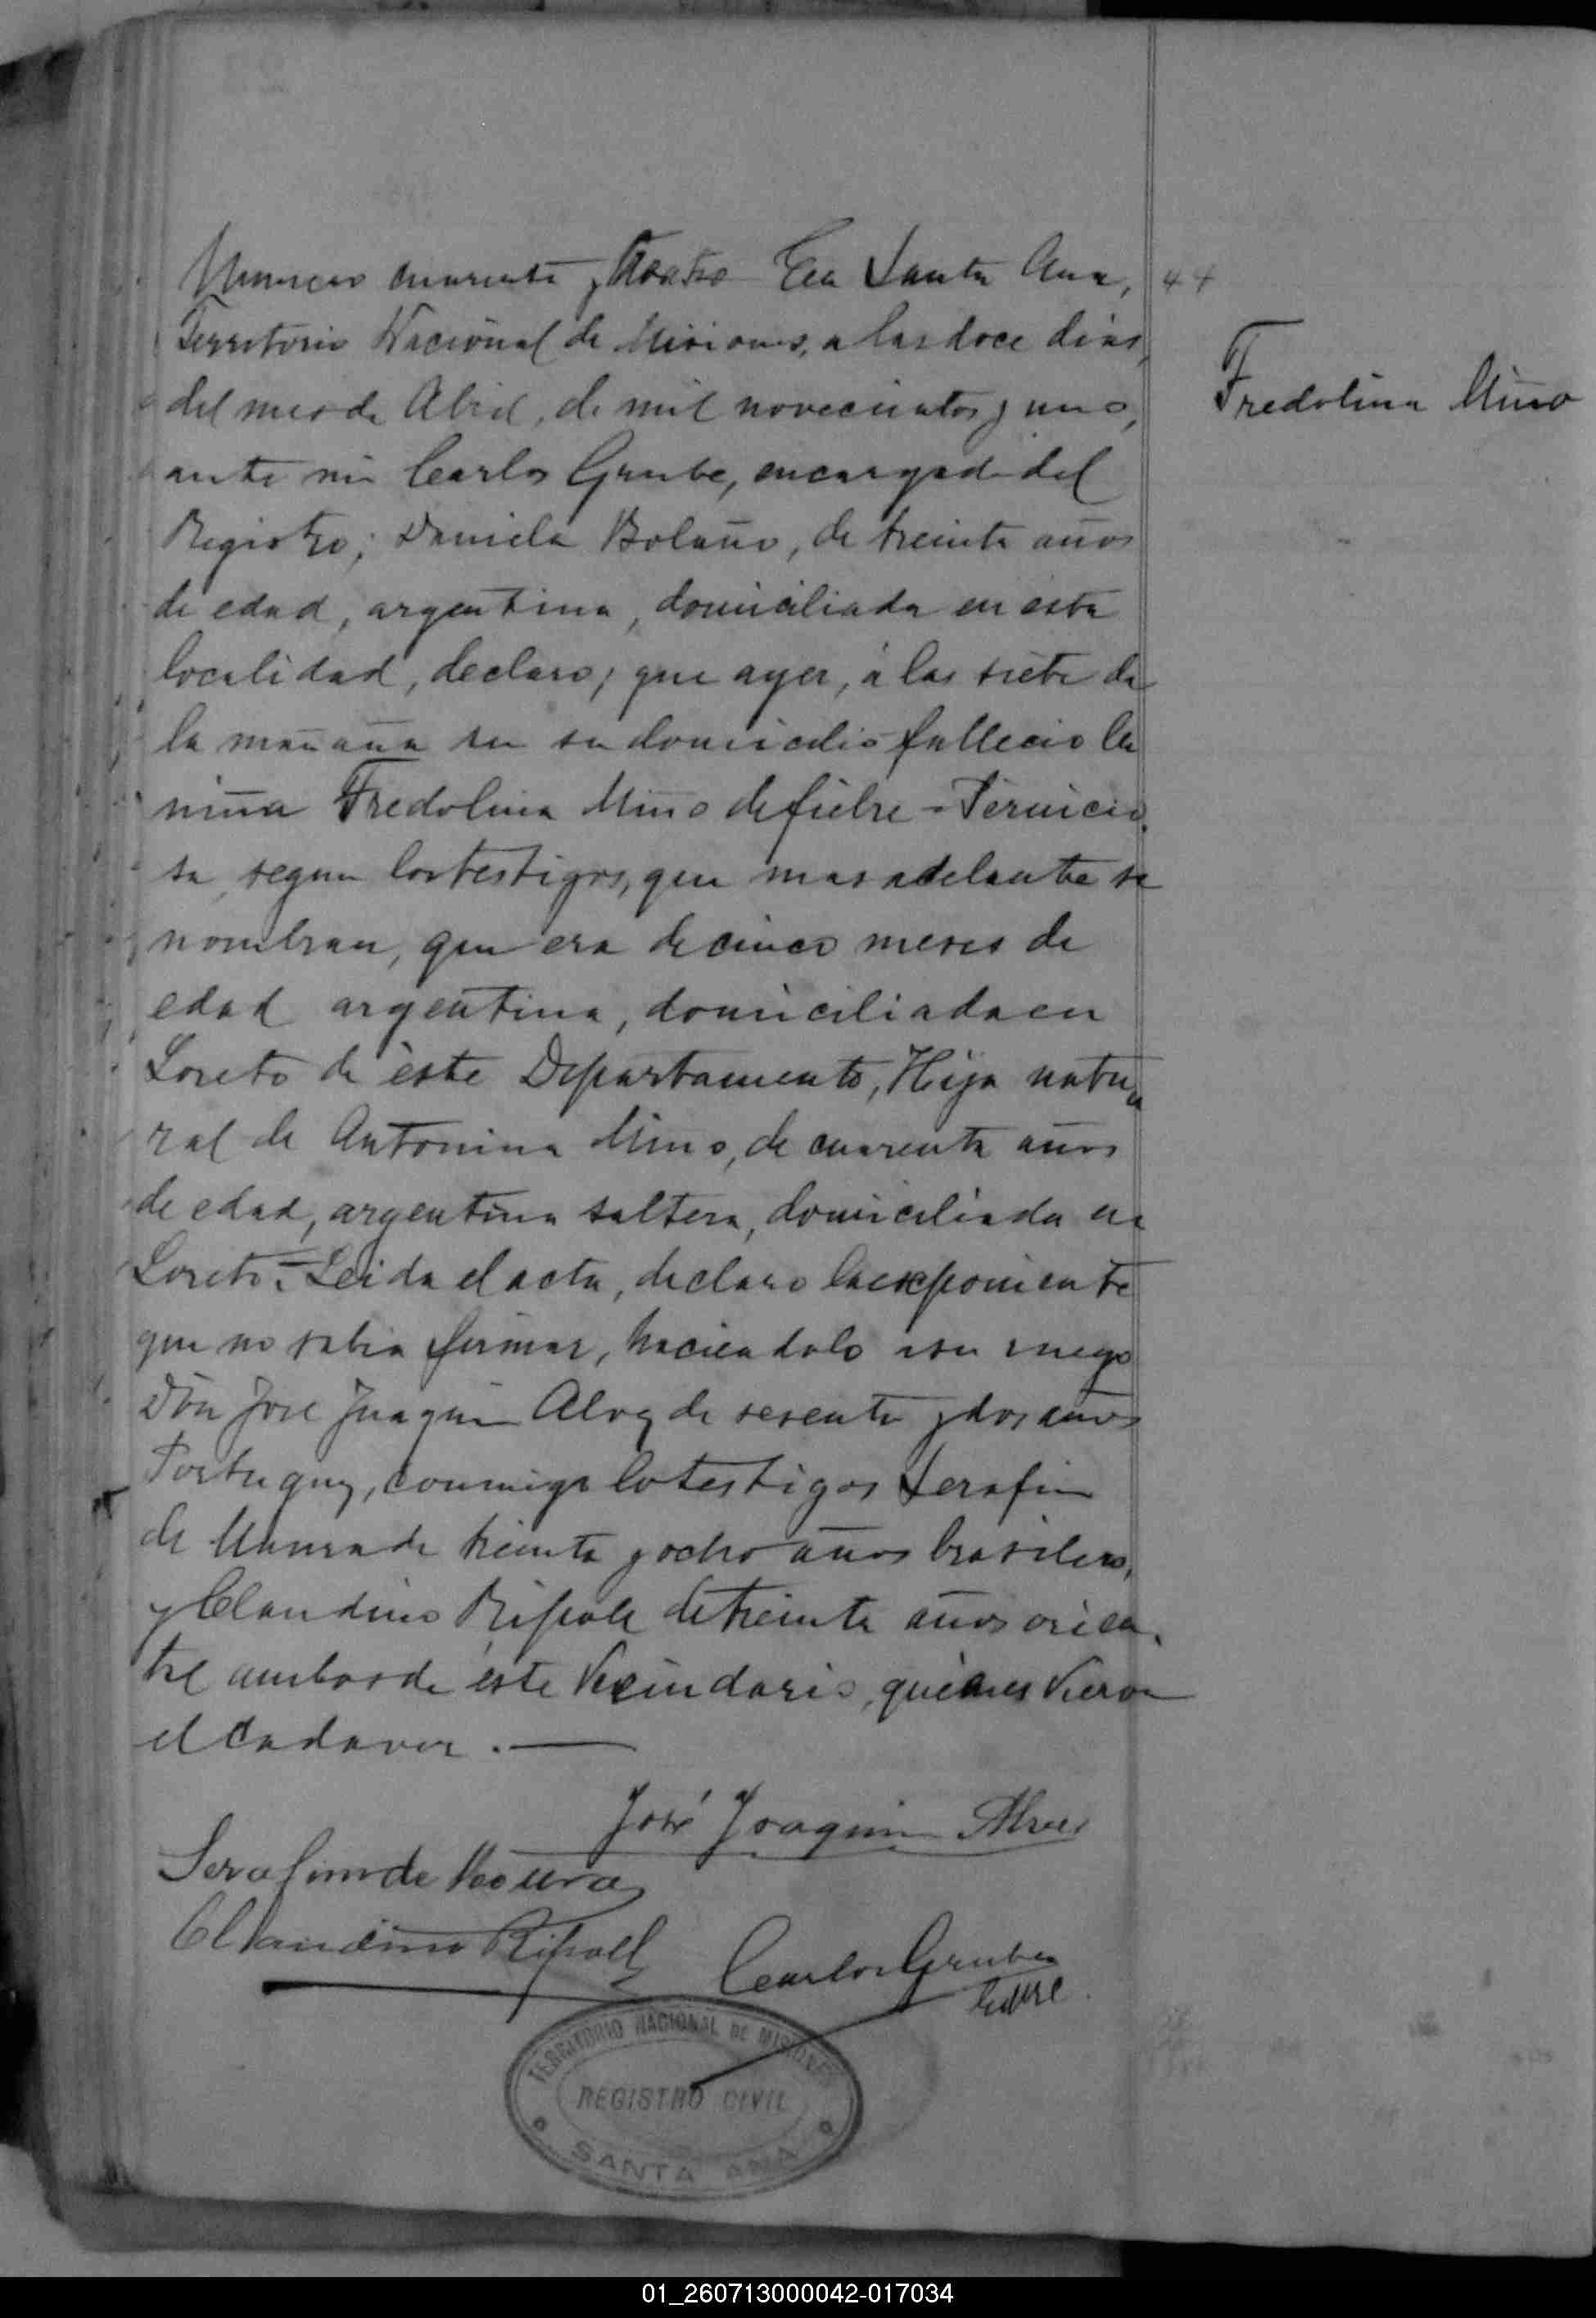 Numero cuarenta y cuatro En Santa Ana,
44
Territorio Nacional de Misiones, a las doce dias,
del mes de Abril, de mil novecientos y uno,
Fredolina Miño
ante mi Carlos Grube, encargado del
Registro; Daniela Bolaño, de treinta años
de edad, argentina, domiciliada en esta
localidad, declaro; que ayer, á las siete de
la mañana en su domicilio fallecio la
niña Fredolina Miño de fiebre - Pernicio
sa segun los testigos, que mas adelante se
nombran, que era de cinco meses de
edad argentina, domiciliada en
Loreto de éste Departamento, Hija natu
ral de Antonina Miño, de cuarenta años
de edad, argentina soltera, domiciliada en
Loreto. = Leida el acta, declaro la exponiente
que no sabia firmar, haciendolo a su ruego
Don Jose Juaquin Alvez de sesenta y dos años
Portuguez, conmigo los testigos Serafin
de Maura de treinta y ocho años brasilero,
y Claudino Ripoll de treinta años orien
tal ambos de éste Vecindario, quienes vieron
el cadaver. —
José Joaquim Alves
Serafim de Moura
Claudino Ripoll
Carlos Grube
TERRITORIO NACIONAL DE MISIONES
REGISTRO CIVIL
SANTA ANA
01_260713000042-017034